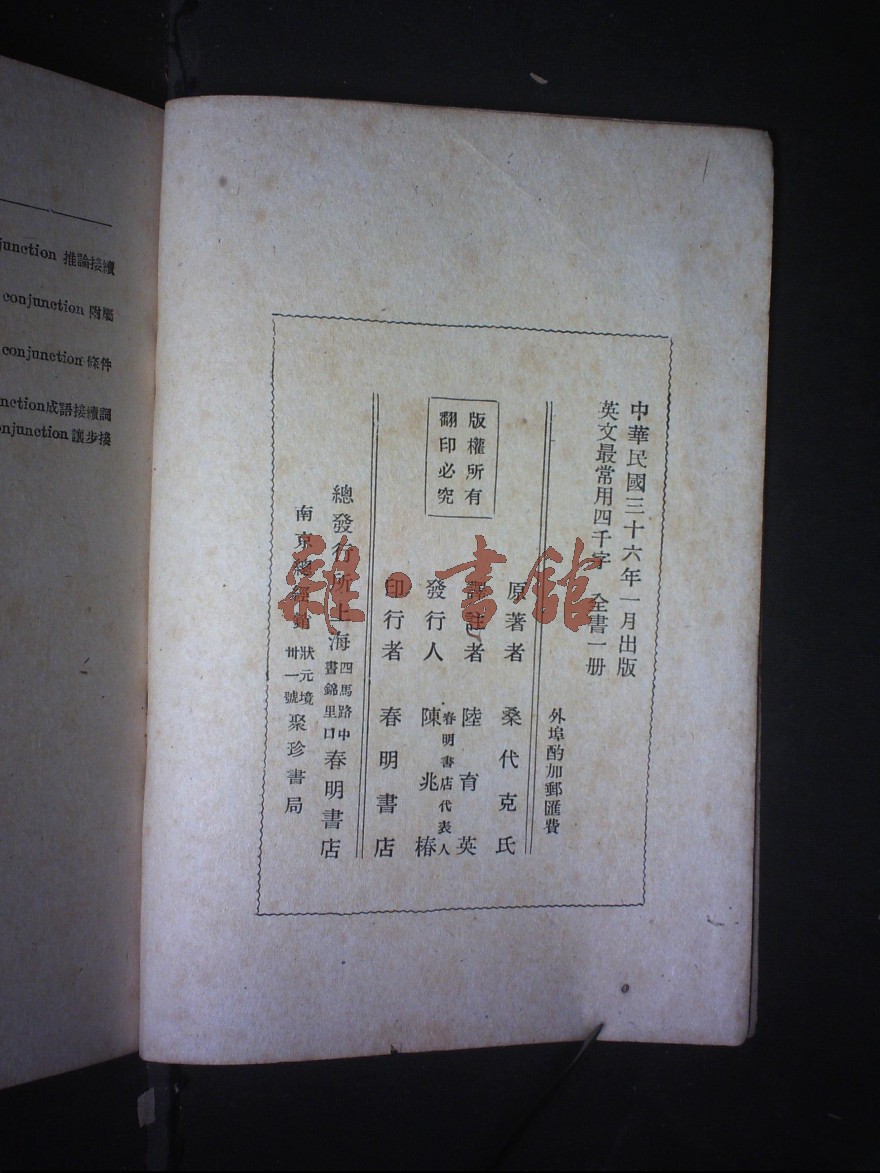 中華民國三十六年一月出版
英文最常用四千字　全書一册
外埠酌加郵匯費
原著者　桑代克氏
註者　陸育英
發行人　春明書店代表人　陳兆椿
印行者　春明書店
版權所有
翻印必究
總發行所　上海　四馬路中　晝錦里口　春明書店
南京總經銷　狀元境　卅一號　聚珍書局
junction 推論接續
conjunction 附屬
conjunction 條件
nction成語接續詞
onjunction 讓步接
雜·書館